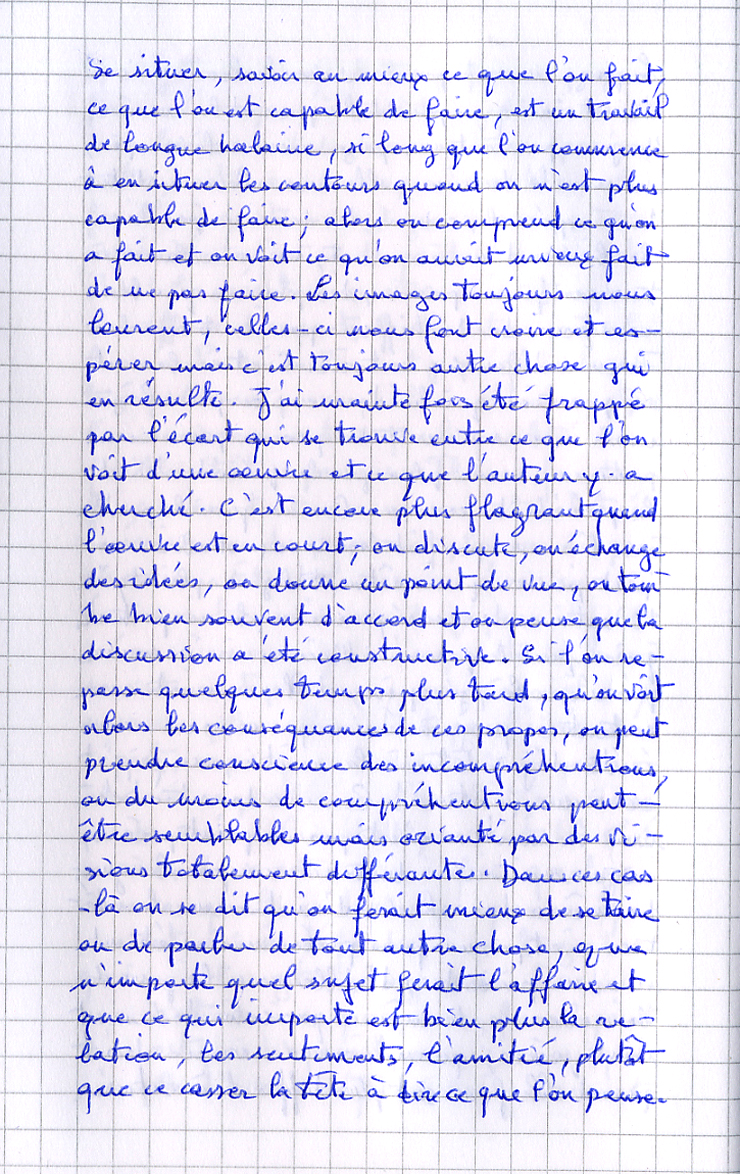 Se situer, savoir au mieux ce que l'on fait,
ce que l'on est capable de faire, est un travail
de longue halaine, si long que l'on commence
à en situer les contours quand on n'est plus
capable de faire; alors on comprend ce qu'on
a fait et on voit ce qu'on aurait mieux fait
de ne pas faire. Les images toujours nous
leurrent, celles-ci nous font croire et es-
pérer mais c'est toujours autre chose qui
en résulte. J'ai mainte fois été frappé
par l'écart qui se trouve entre ce que l'on
voit d'une oeuvre et ce que l'auteur y a
cherché. C'est encore plus flagrant quand
l'oeuvre est en court; on discute, on échange
des idées, on donne un point de vue, on tom
be bien souvent d'accord et on pense que la
discussion a été constructive. Si l'on re-
passe quelques temps plus tard, qu'on voit
alors les conséquances de ces propos, on peut
prendre conscience des incompréhentions,
ou du moins de compréhentions peut-
être semblables mais orianté par des vi-
sions totalement différantes. Dans ces cas
-là on se dit qu'on ferait mieux de se taire
ou de parler de tout autre chose, que
n'importe quel sujet ferait l'affaire et
que ce qui importe est bien plus la re-
lation, les sentiments, l'amitié, plutôt
que ce casser la tête à dire ce que l'on pense.